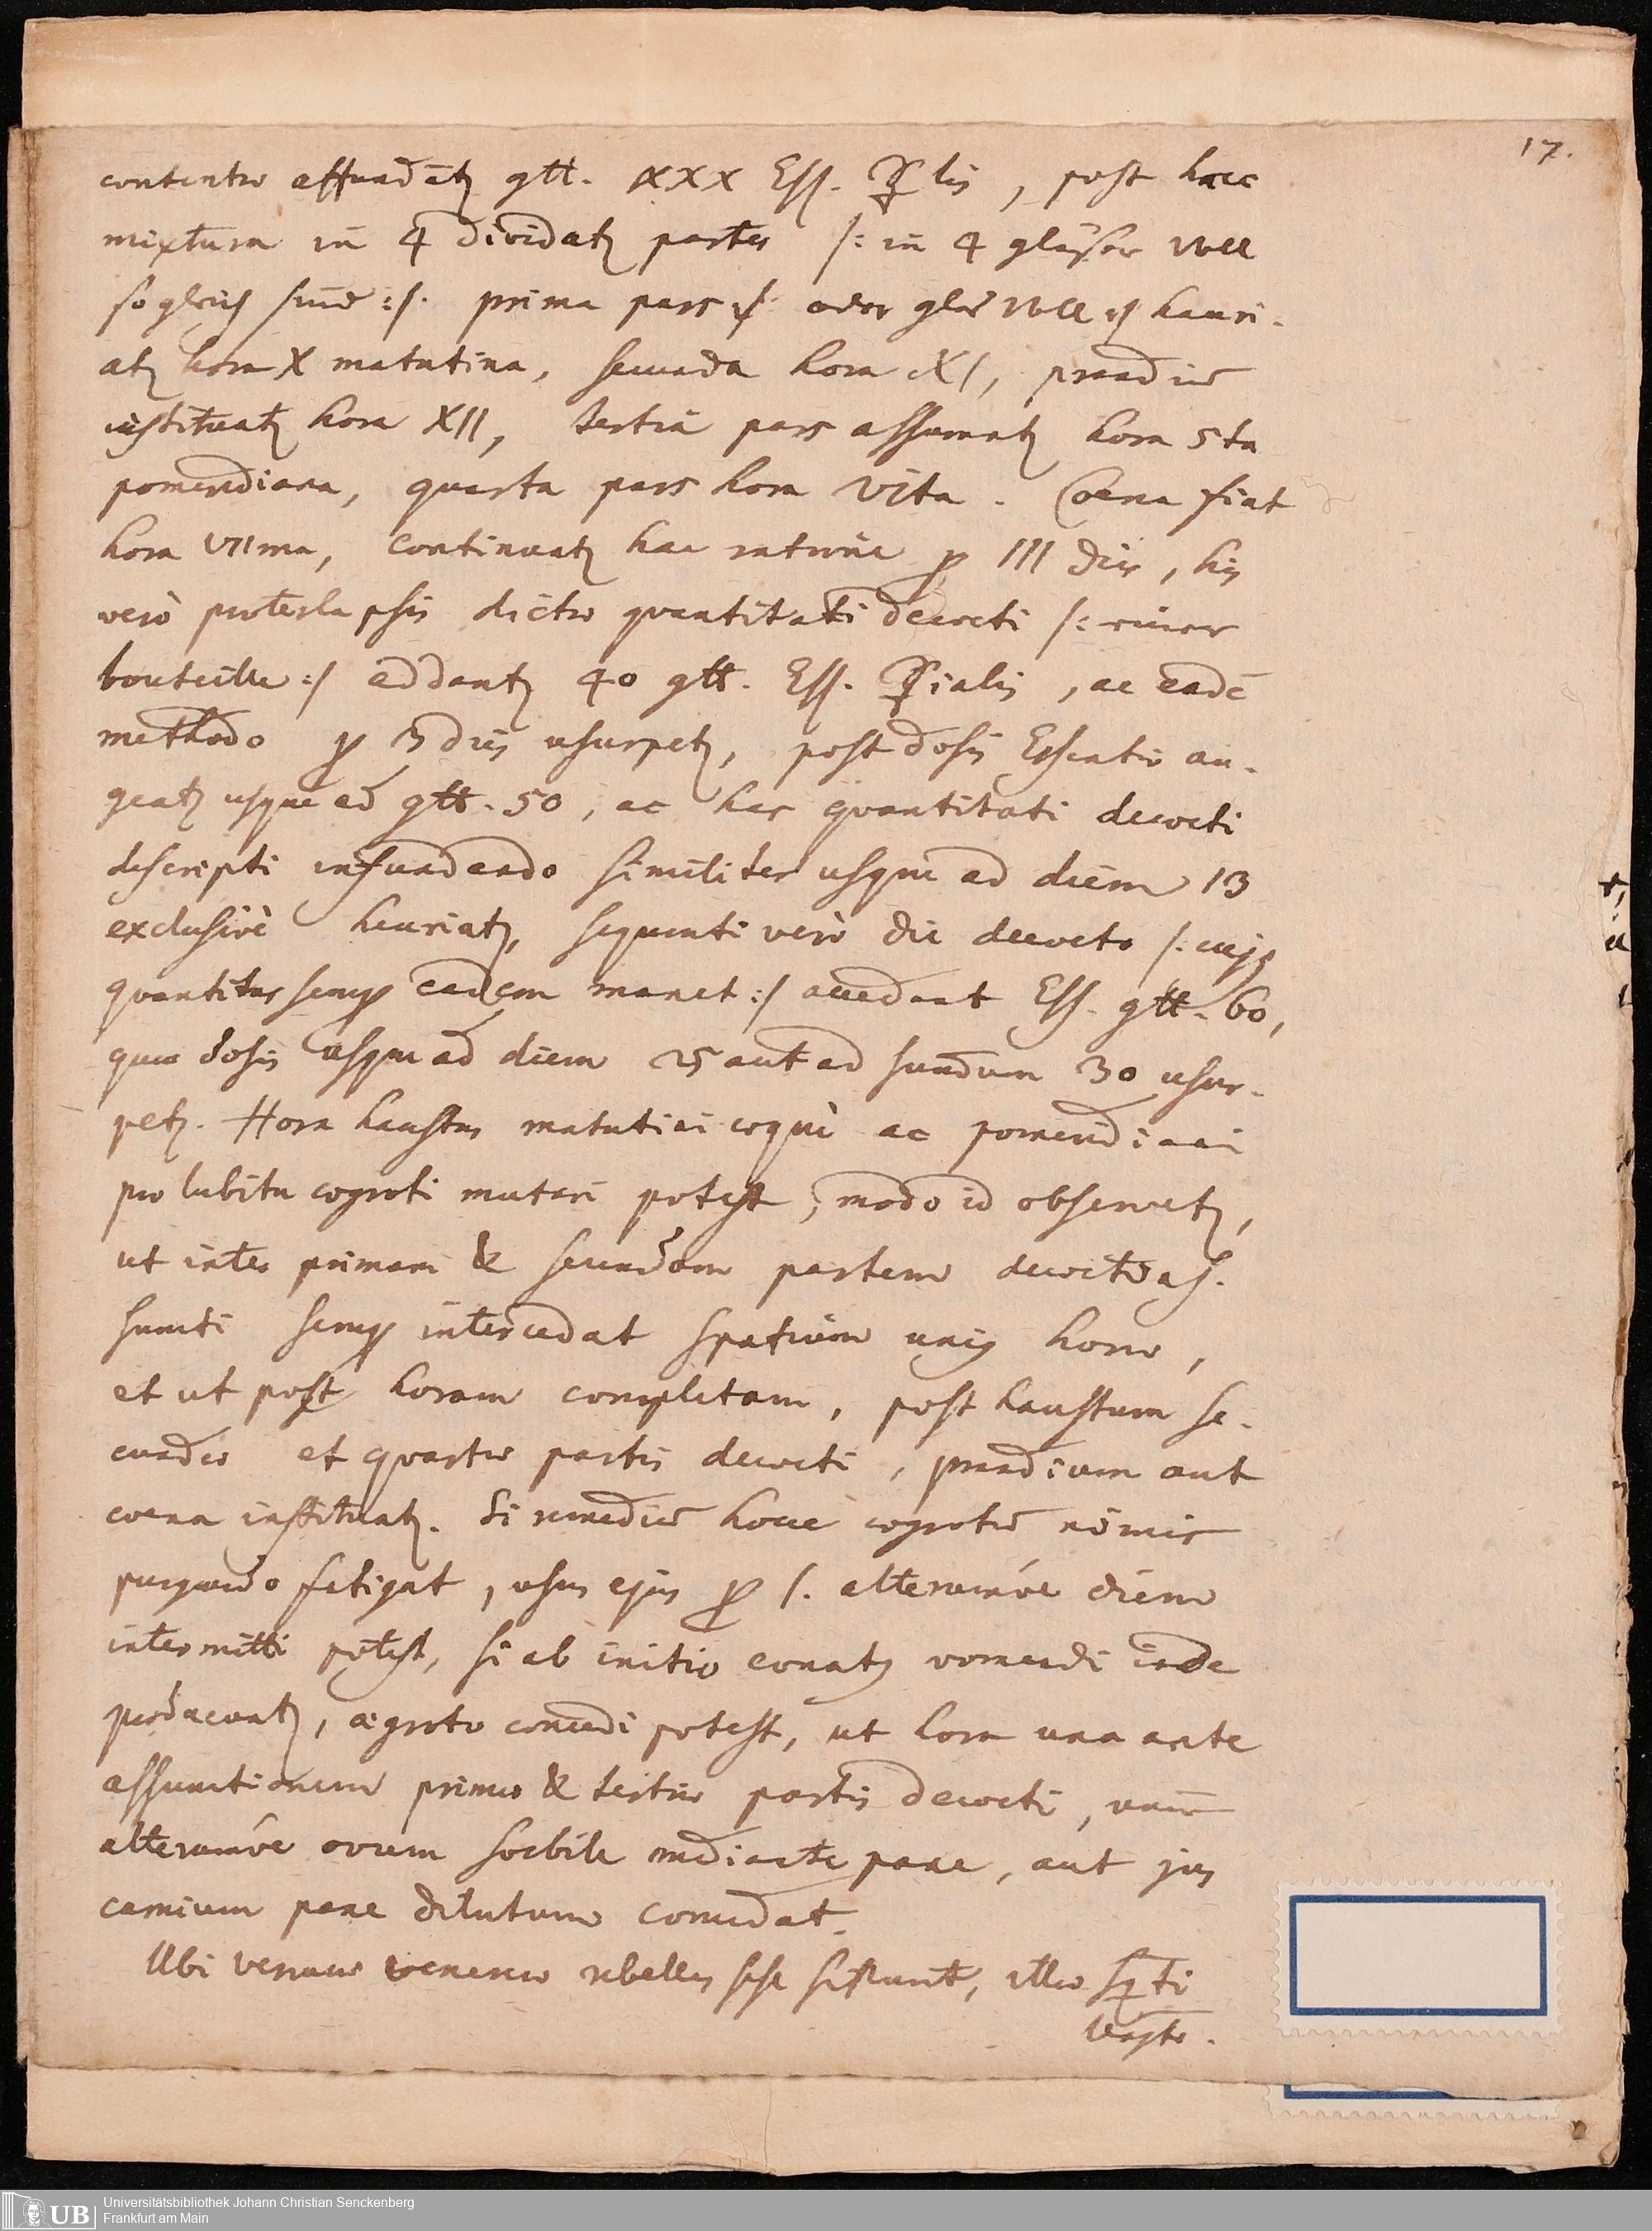 17.
contentæ affundatꝫ gtt. XXX Ess. ☿lis, post haec
mixtura in 4 dividatꝫ partes /: in 4 gläser voll
so gleich sind :/. prima pars /: oder glas voll :/ hauri-
atꝫ hora X matutina, secunda hora XI, prandiū
instituatꝫ hora XII, tertia pars assumatꝫ hora 5ta
pomeridiana, quarta pars hora VIta. Coena fiat
hora VIIma, continuatꝫ hac ratione ꝑ III dies, his
verò praeterlapsis dictæ quantitati decocti /: einer
bouteille :/ addantꝫ 40 gtt. Ess. ☿ialis, ac eadē
methodo ꝑ 3 dies usurpetꝫ, post dosis Essentiæ au-
geatꝫ usque ad gtt. 50, ac hæc quantitati decocti
descripti infundendo similiter usque ad diem 13
exclusivè hauriatꝫ, sequenti verò die decocto /: cujꝫ
quantitas semꝑ eadem manet :/ accedant Ess. gtt. 60,
quæ dosis usque ad diem 25 aut ad summum 30 usur-
petꝫ. Hora haustus matutini æquè ac pomeridiani
pro lubitu ægroti mutari potest, modo id observetꝫ,
ut inter primam & secundam partem decocti as-
sumti semꝑ intercedat spatium unius horæ,
et ut post horam completam, post haustum se-
cundæ et quartæ partis decocti, prandium aut
coena instituatꝫ. Si remediū hocce ægrotū nimis
purgando fatigat, usus ejus ꝑ 1. alterumve diem
intermitti potest, si ab initio conatꝫ vomendi inde
producantꝫ, ægroto concedi potest, ut hora una ante
assumtionem primæ & tertiæ partis decocti, unū
alterumve ovum sorbile mediante pane, aut jus
carnium pane dilutum comedat.
Ubi verrucæ venereæ rebelles sese sistunt, illæ